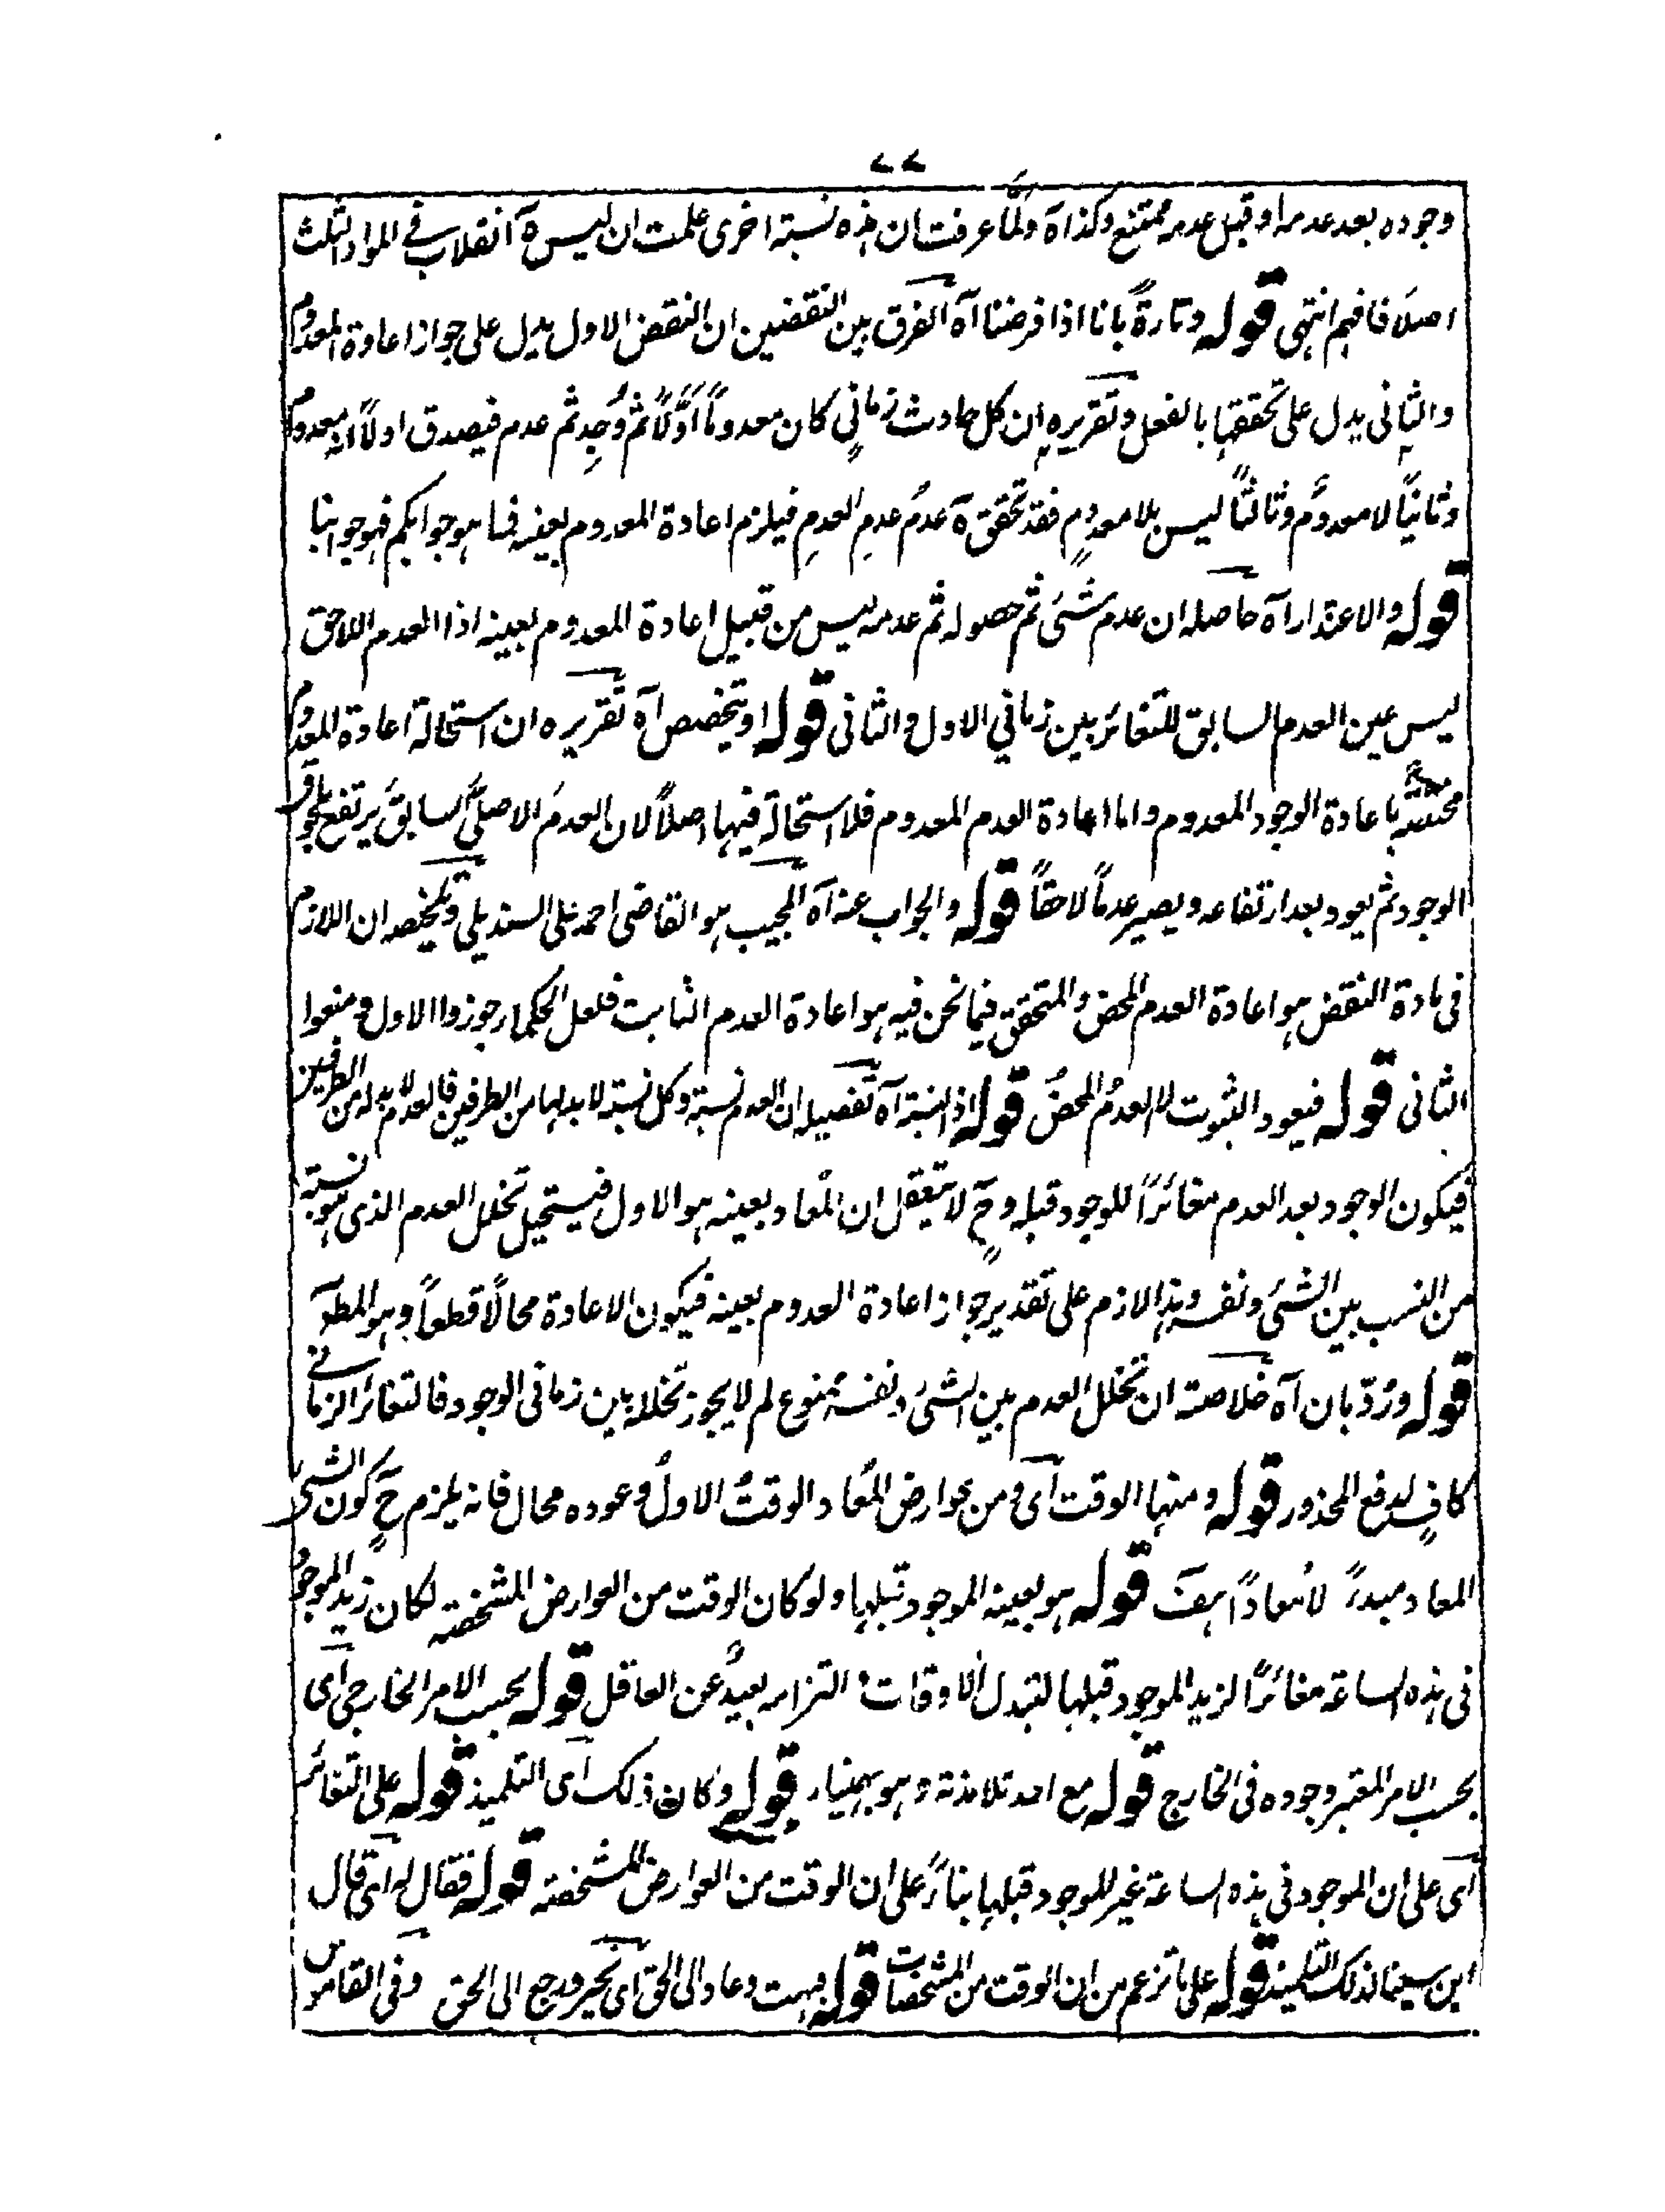 ٧٧
وجوده بعد عدمه او قبل عدمه ممتنع وكذا آه ولمّا عرفت ان هذه نسبة اخرى علمت ان ليس ة انقلاب فى المواد الثلث
اصلًا فافهم انتهى قوله وتارةً بانا اذا فرضنا آه الفرق بين النقضين ان النقض الاول يدل على جواز اعادة المعدوم
والثانى يدل على تحققها بالفعل وتقريره ان كل حادث زمانىٍ كان معدومًا اوَّلًا ثم وُجِد ثم عدم فيصدق اولًا انه معدوم
وثانيًا لا معدومٌ وثالثًا ليس بلا معدومٍ فقد تحقق ة عدمُ عدمِ العدمِ فيلزم اعادة المعدوم بعينه فما هو جوابكم فهو جوابنا
قوله والاعتذار آه حاصله ان عدم شئ ثم حصوله ثم عدمه ليس من قبيل اعادة المعدوم بعينه اذا العدم اللاحق
ليس عين العدم السابق للتغائر بين زمانى الاول والثانى قوله او يتخصص آه تقريره ان استحالة اعادة المعدوم
مختصة باعادة الوجود المعدوم واما اعادة العدم المعدوم فلا استحالة فيها اصلًا لان العدمَ الاصلىَّ السابقَ يرتفع بلحوق
الوجود ثم يعود بعد ارتفاعه ويصير عدمًا لاحقًا قوله والجواب عنه آه المجيب هو القاضى احمد على السنديلى وتلخيصه ان اللازم
فى مادة النقض هو اعادة العدم المحض والمتحقق فيما نحن فيه هو اعادة العدم الثابت فلعل الحكماء جوزوا الاول ومنعوا
الثانى قوله فيعود الثبوت لا العدمُ المحضُ قوله اذ النسبة آه تفصيله ان العدم نسبة وكل نسبة لا بد لها من الطرفين فالعدم لا بد له من الطرفين
فيكون الوجود بعد العدم مغائرًا للوجود قبله وحٍ لا يتعقل ان المُعاد بعينه هو الاول فيستحيل تخلل العدم الذى هو نسبة
من النسب بين الشئ ونفسه وهذا لازم على تقدير جواز اعادة المعدوم بعينه فيكون الاعادة محالًا قطعًا وهو المطو
قوله ورُدّ بان آه خلاصته ان تخلل العدم بين الشئ ونفسه ممنوع لم لا يجوز تخلله بين زمانى الوجود فالتغائر الزمانى
كافٍ لدفع المحذور قوله ومنها الوقت اى ومن عوارض المُعاد الوقتُ الاول وعوده محال فانه يلزم حٍ كون الشئ
المعاد مبدءً لا مُعادًا هف قوله هو بعينه الموجود قبلها ولو كان الوقت من العوارض المشخصة لكان زيد الموجود
فى هذه الساعة مغائرًا لزيد الموجود قبلها لتبدل الاوقات التزامه بعيدٌ عن العاقل قوله بحسب الامر الخارجى اى
بحسب الامر المعتبر وجوده فى الخارج قوله مع احد تلامذته وهو بهمنيار قوله وكان ذلك اى التلميذ قوله على التغائر
اى على ان الموجود فى هذه الساعة غير للموجود قبلها بناءً على ان الوقت من العوارض المشخصة قوله فقال له اى قال
ابن سينا لذلك التلميذ قوله على ما تزعم من ان الوقت من المشخصات قوله فبهت وعاد الى الحق اى تحير ورجع الى الحق وفى القاموس